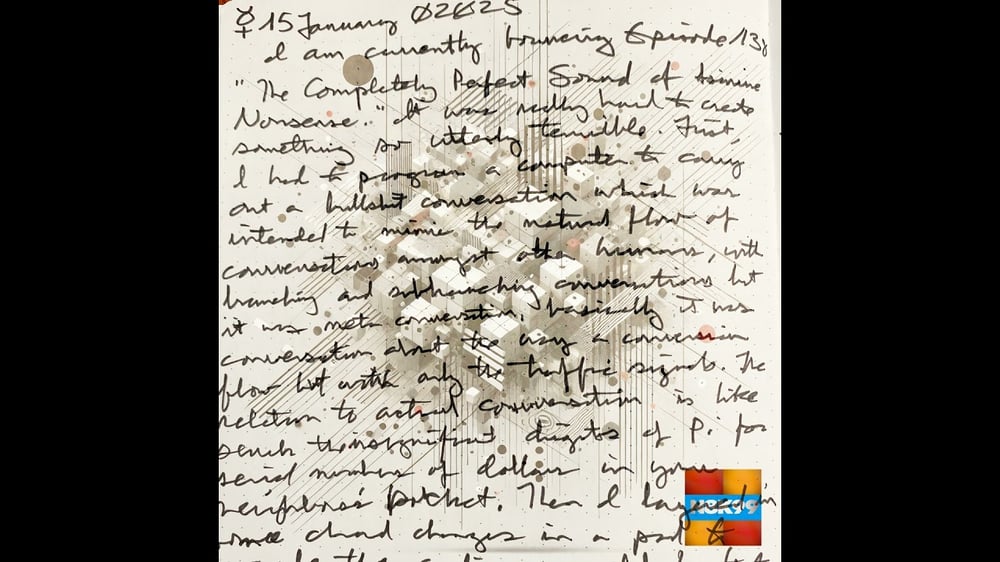 ☿ 15 January 02025
I am currently bouncing Episode 138
"The Completely Perfect Sound of Asinine
Nonsense." It was really hard to create
something so utterly terrible. First,
I had to program a computer to carry
out a bullshit conversation which was
intended to mimic the natural flow of
conversations amongst other humans, with
branching and subbranching conversations but
it was meta conversation, basically it was
conversation about the way a conversion
flow but with only the traffic signals. The
relation to actual conversation is like
digits of Pi for
serial numbers of dollars in your
neighbors pocket. Then I layered in
some chord changes in a pad to